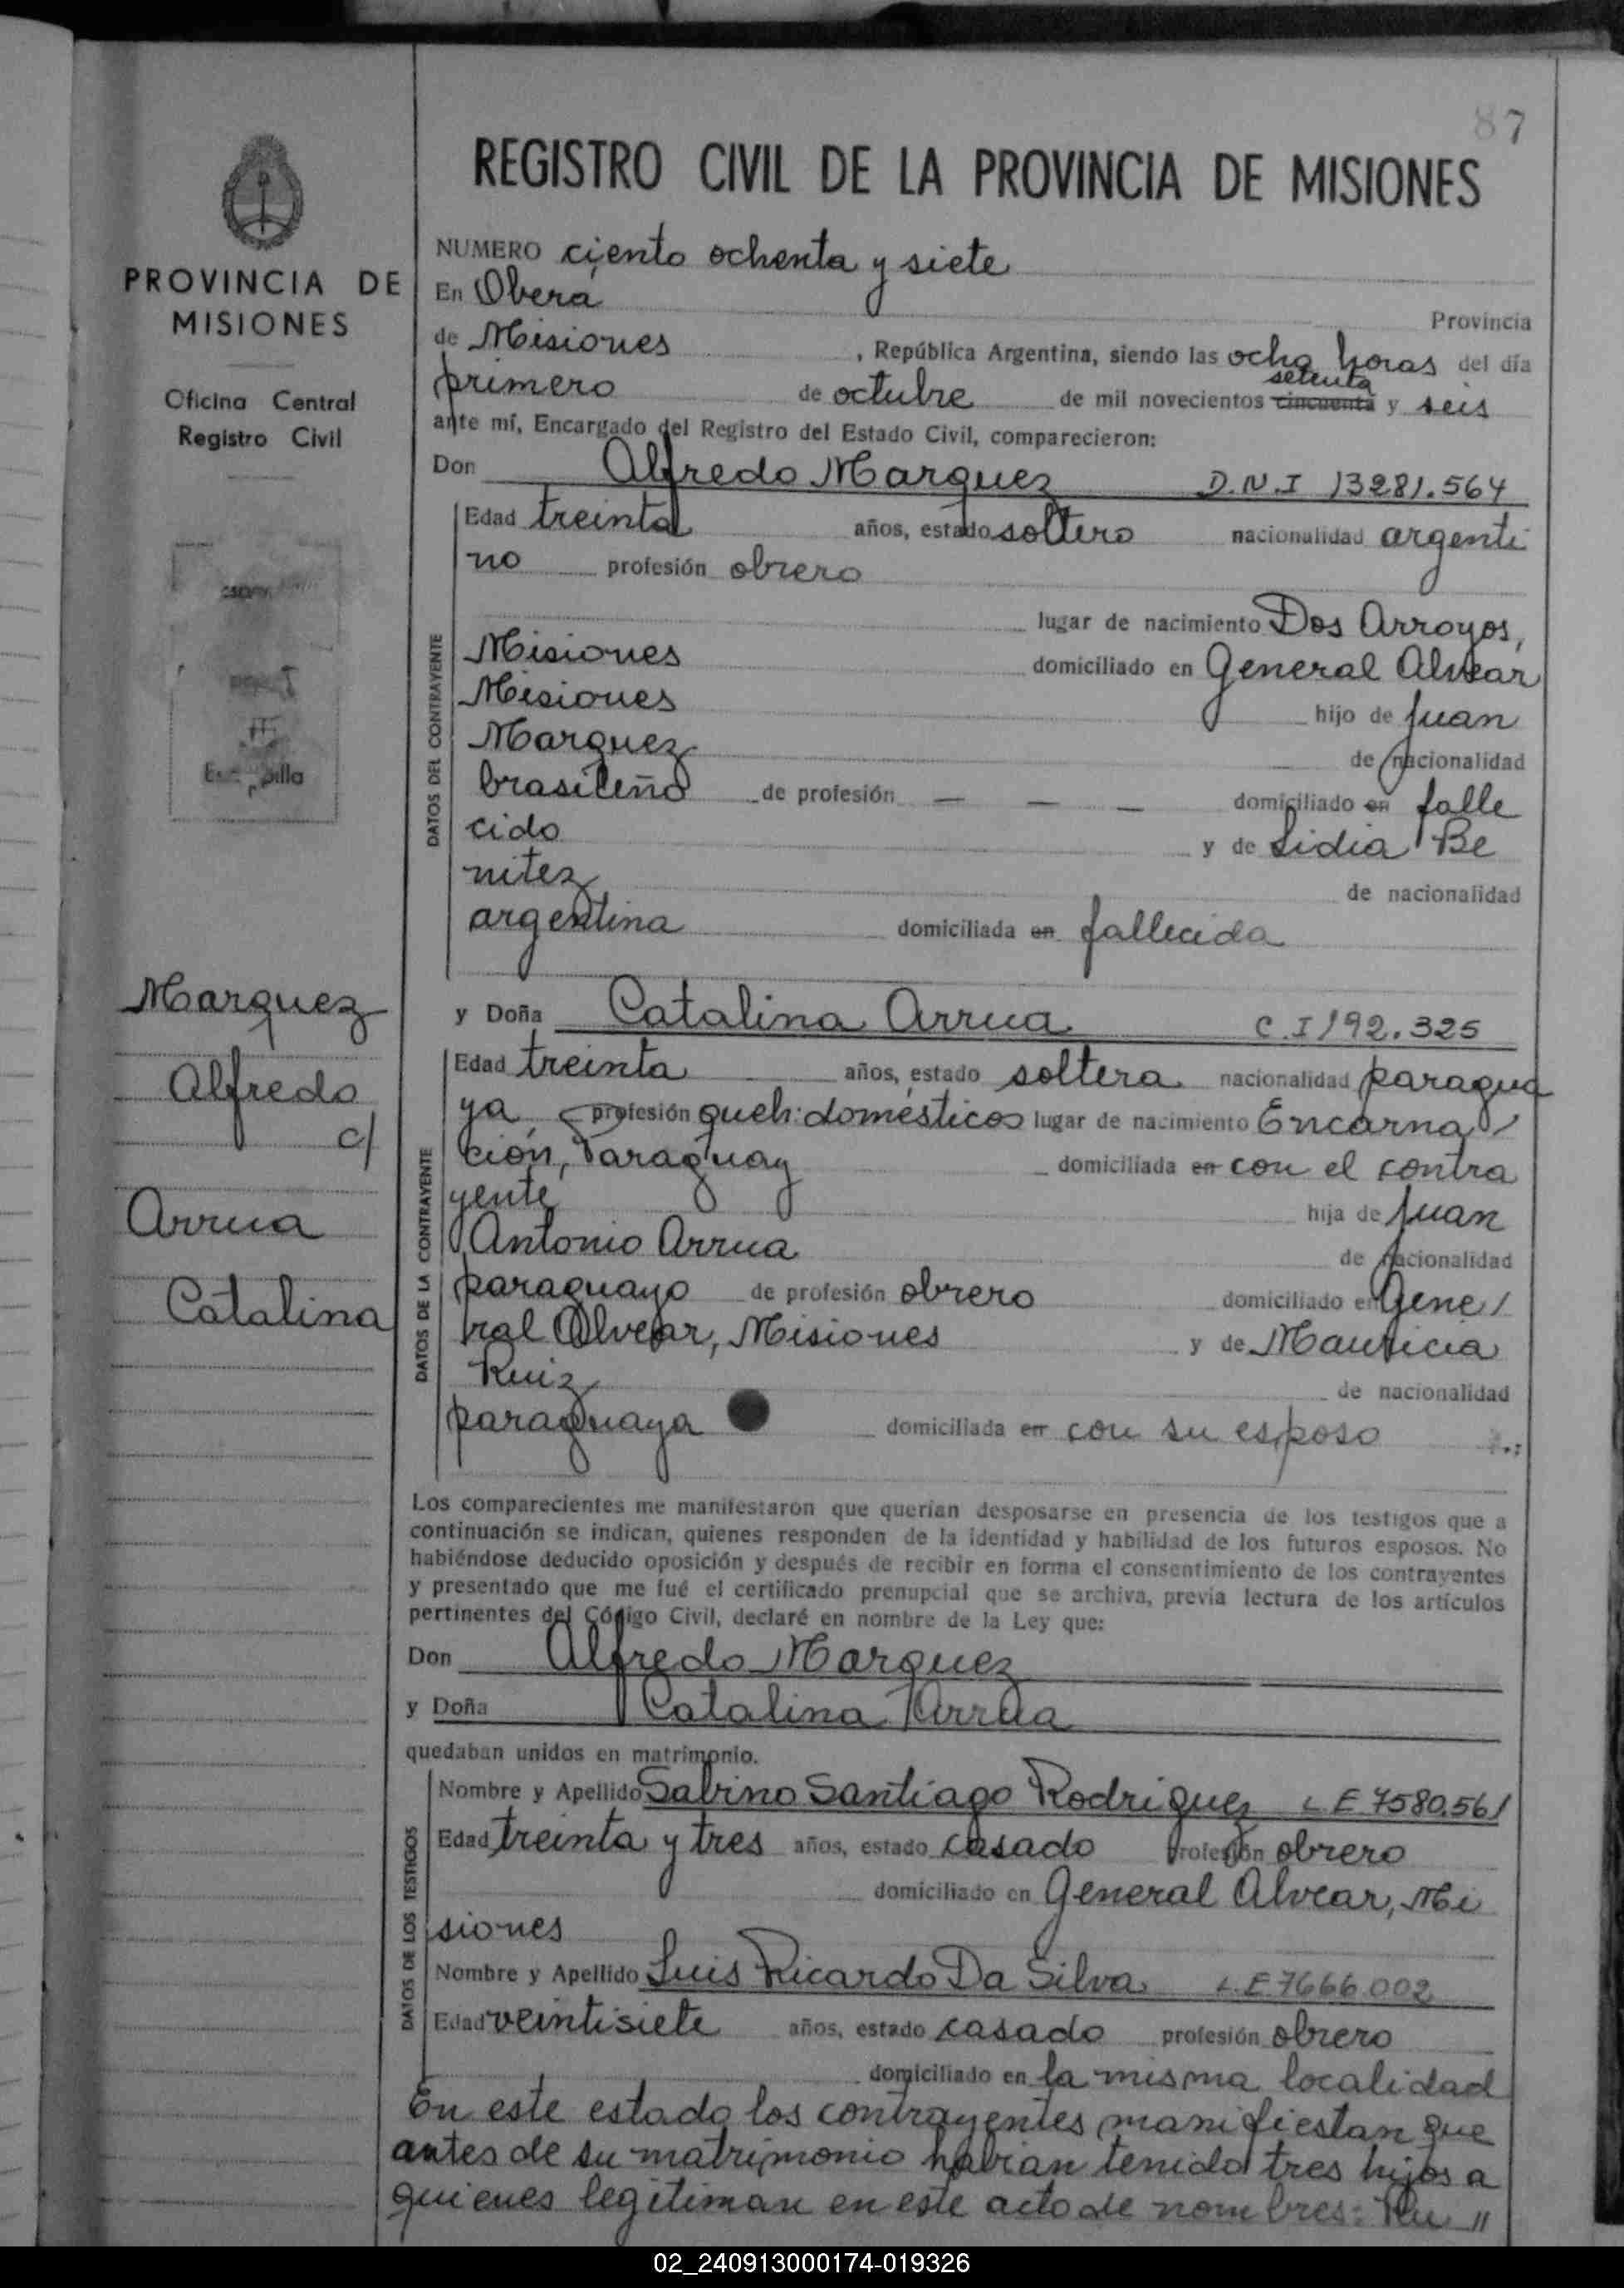 87
REGISTRO CIVIL DE LA PROVINCIA DE MISIONES
PROVINCIA DE
MISIONES
Oficina Central
Registro Civil
Marquez
Alfredo
c/
Arrua
Catalina
NUMERO ciento ochenta y siete
En Oberá
Provincia
de Misiones , República Argentina, siendo las ocho horas del día
setenta
primero de octubre de mil novecientos cincuenta y seis
ante mí, Encargado del Registro del Estado Civil, comparecieron:
Don Alfredo Marquez D.N.I 13281.564
DATOS DEL CONTRAYENTE
Edad treinta años, estado soltero nacionalidad argenti
no profesión obrero
lugar de nacimiento Dos Arroyos,
Misiones domiciliado en General Alvear
Misiones hijo de Juan
Marquez de nacionalidad
brasileño de profesión — — — domiciliado en falle
cido y de Lidia Be
nitez de nacionalidad
argentina domiciliada en fallecida
y Doña Catalina Arrua C.I 192.325
DATOS DE LA CONTRAYENTE
Edad treinta años, estado soltera nacionalidad paragua
ya profesión queh: domésticos lugar de nacimiento Encarna/
ción, Paraguay domiciliada en con el contra
yente hija de Juan
Antonio Arrua de nacionalidad
paraguayo de profesión obrero domiciliado en Gene/
ral Alvear, Misiones y de Mauricia
Ruiz de nacionalidad
paraguaya domiciliada en con su esposo
Los comparecientes me manifestaron que querían desposarse en presencia de los testigos que a
continuación se indican, quienes responden de la identidad y habilidad de los futuros esposos. No
habiéndose deducido oposición y después de recibir en forma el consentimiento de los contrayentes
y presentado que me fué el certificado prenupcial que se archiva, previa lectura de los artículos
pertinentes del Código Civil, declaré en nombre de la Ley que:
Don Alfredo Marquez
y Doña Catalina Arrua
quedaban unidos en matrimonio.
DATOS DE LOS TESTIGOS
Nombre y Apellido Sabino Santiago Rodriguez L E 7580.561
Edad treinta y tres años, estado casado profesión obrero
domiciliado en General Alvear, Mi
siones
Nombre y Apellido Luis Ricardo Da Silva L.E 7666.002
Edad veintisiete años, estado casado profesión obrero
domiciliado en la misma localidad
En este estado los contrayentes manifiestan que
antes de su matrimonio habian tenido tres hijos a
quienes legitiman en este acto de nombres: Ru //
02_240913000174-019326